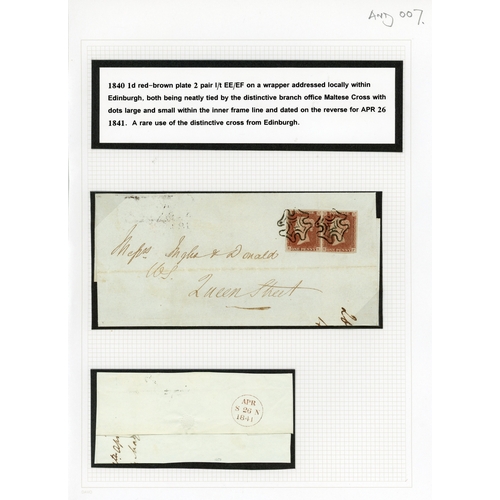 AND 007.
1840 1d red-brown plate 2 pair l/t EE/EF on a wrapper addressed locally within
Edinburgh, both being neatly tied by the distinctive branch office Maltese Cross with
dots large and small within the inner frame line and dated on the reverse for APR 26
1841. A rare use of the distinctive cross from Edinburgh.
Messrs & Donald
WS.
Queen Street
APR
S 26 N
1841